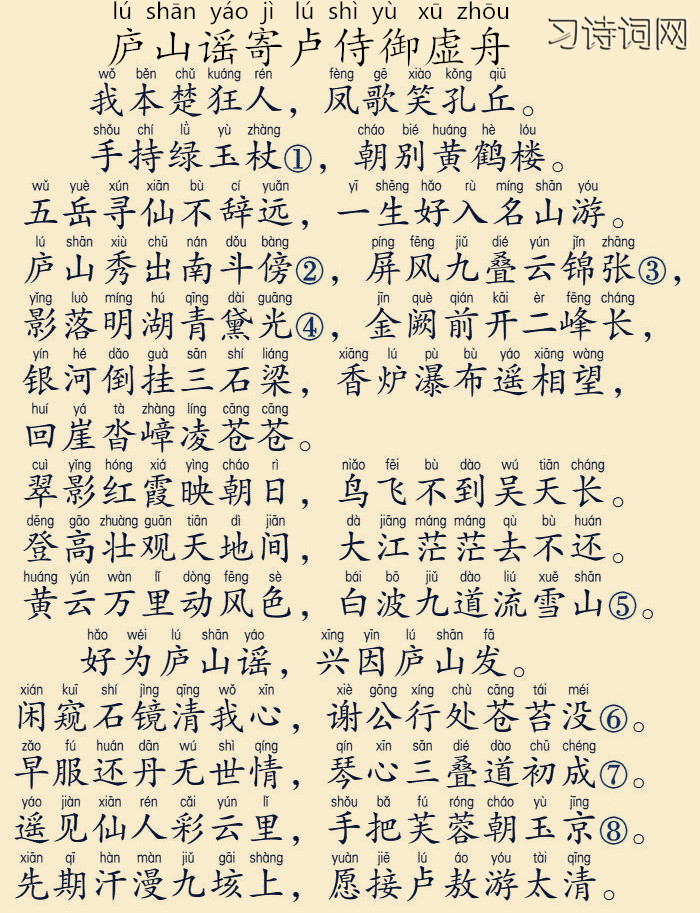 lú shān yáo jì lú shì yù xū zhōu
习诗词网
庐山谣寄卢侍御虚舟
wǒ běn chǔ kuáng rén fèng gē xiào kǒng qiū
我本楚狂人，凤歌笑孔丘。
shǒu chí lǜ yù zhàng cháo bié huáng hè lóu
手持绿玉杖①，朝别黄鹤楼。
wǔ yuè xún xiān bù cí yuǎn yī shēng hǎo rù míng shān yóu
五岳寻仙不辞远，一生好入名山游。
lú shān xiù chū nán dǒu bàng píng fēng jiǔ dié yún jǐn zhāng
庐山秀出南斗傍②，屏风九叠云锦张③，
yǐng luò míng hú qīng dài guāng jīn què qián kāi èr fēng cháng
影落明湖青黛光④，金阙前开二峰长，
yín hé dǎo guà sān shí liáng xiāng lú pù bù yáo xiāng wàng
银河倒挂三石梁，香炉瀑布遥相望，
huí yá tà zhàng líng cāng cāng
回崖沓嶂凌苍苍。
cuì yǐng hóng xiá yìng cháo rì niǎo fēi bù dào wú tiān cháng
翠影红霞映朝日，鸟飞不到吴天长。
dēng gāo zhuàng guān tiān dì jiān dà jiāng máng máng qù bù huán
登高壮观天地间，大江茫茫去不还。
huáng yún wàn lǐ dòng fēng sè bái bō jiǔ dào liú xuě shān
黄云万里动风色，白波九道流雪山⑤。
hǎo wéi lú shān yáo xīng yīn lú shān fā
好为庐山谣，兴因庐山发。
xián kuī shí jìng qīng wǒ xīn xiè gōng xíng chù cāng tái méi
闲窥石镜清我心，谢公行处苍苔没⑥。
zǎo fú huán dān wú shì qíng qín xīn sān dié dào chū chéng
早服还丹无世情，琴心三叠道初成⑦。
yáo jiàn xiān rén cǎi yún lǐ shǒu bǎ fú róng cháo yù jīng
遥见仙人彩云里，手把芙蓉朝玉京⑧。
xiān qī hàn màn jiǔ gāi shàng yuàn jiē lú áo yóu tài qīng
先期汗漫九垓上，愿接卢敖游太清。